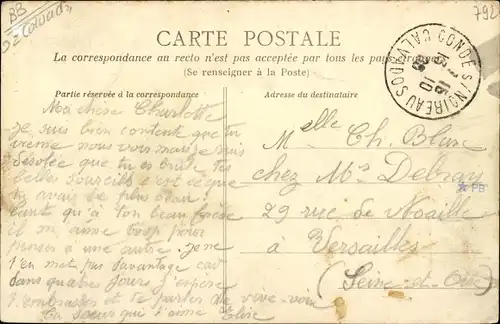 BB
792
52 Calvados
CARTE POSTALE
La correspondance au recto n'est pas acceptée par tous les pays étrangers
(Se renseigner à la Poste)
CONDE S/NOIREAU CALVADOS
Partie réservée à la correspondance
Adresse du destinataire
Ma chère Charlotte
je suis bien content que tu
vienne nous voir mais je suis
désolée que tu es brulé tes
belles sourcils c'est ce que
tu avais de plus
à ton beau
il m'aime trop pour
penser à une autre. je ne
t'en met pas davantage car
dans quatre jours j'espère
t'embrasser et te parler de vive-voix
Ta soeur qui t'aime Elise
Melle Ch. Blanc
chez Mrs Debray
29 rue de Noailles
à Versailles
(Seine-et-Oise)
PB